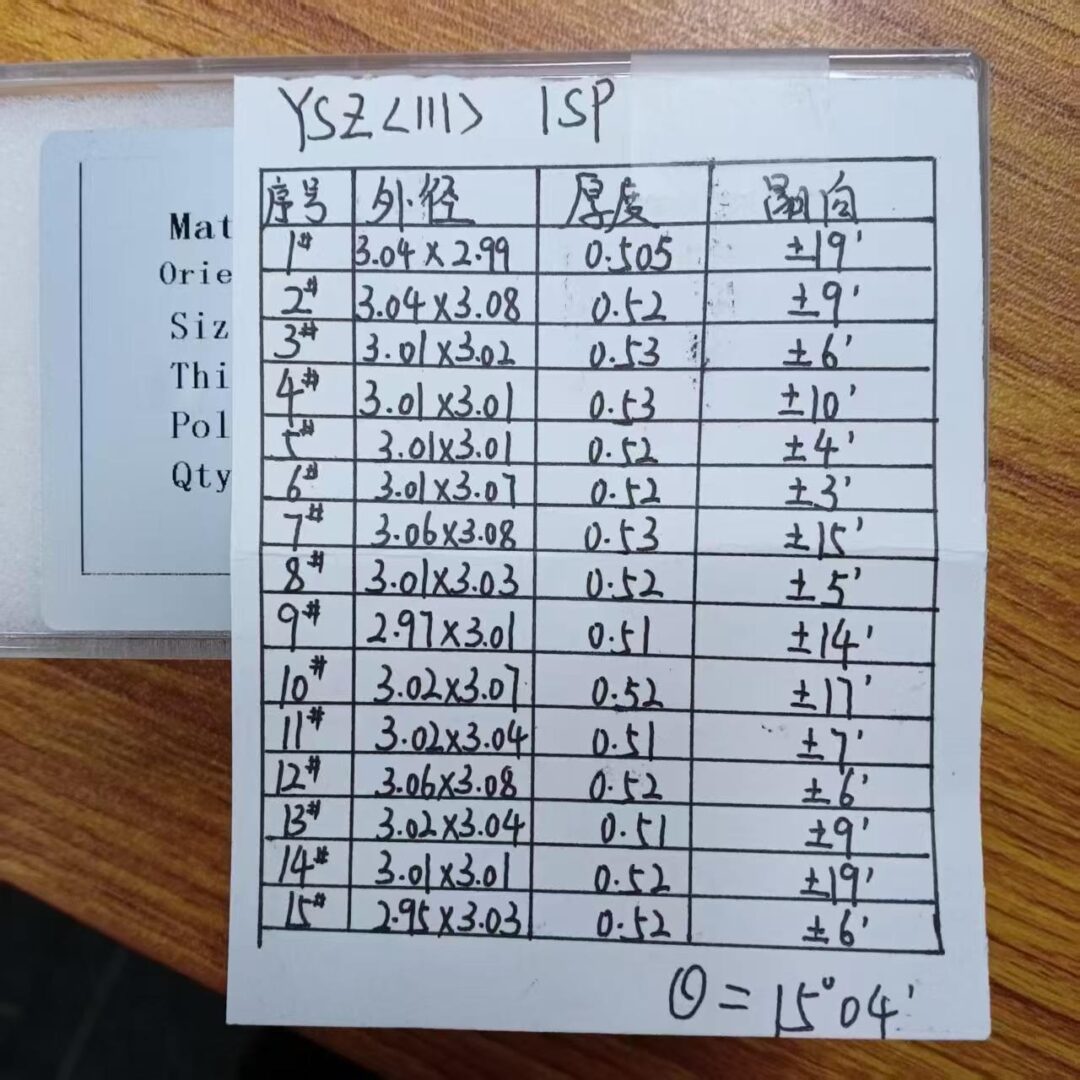 YSZ<111> 1SP
序号 外径 厚度 晶向
1# 3.04×2.99 0.505 ±19′
2# 3.04×3.08 0.52 ±9′
3# 3.01×3.02 0.53 ±6′
4# 3.01×3.01 0.53 ±10′
5# 3.01×3.01 0.52 ±4′
6# 3.01×3.07 0.52 ±3′
7# 3.06×3.08 0.53 ±15′
8# 3.01×3.03 0.52 ±5′
9# 2.97×3.01 0.51 ±14′
10# 3.02×3.07 0.52 ±17′
11# 3.02×3.04 0.51 ±7′
12# 3.06×3.08 0.52 ±6′
13# 3.02×3.04 0.51 ±9′
14# 3.01×3.01 0.52 ±19′
15# 2.95×3.03 0.52 ±6′
θ=15°04′
Mat
Orie
Siz
Thi
Pol
Qty